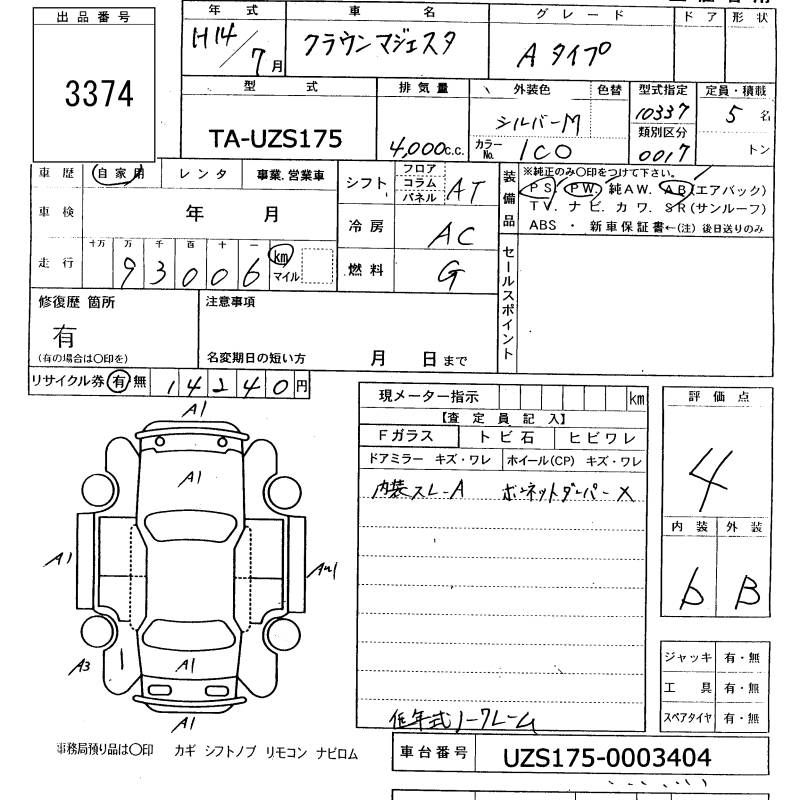 出品番号
3374
年式 車名 グレード ドア 形状
H14/7月 クラウンマジェスタ Aタイプ
型式 排気量 外装色 色替 型式指定 定員・積載
シルバーM 10337 5名
類別区分
TA-UZS175 4,000c.c. カラーNo. 1C0 0017 トン
車歴 自家用 レンタ 事業.営業車
車検 年 月
走行 十万 万 千 百 十 一
93006 km マイル
シフト フロア コラム パネル AT
冷房 AC
燃料 G
装備品
※純正のみ○印をつけて下さい。
PS. PW. 純AW. AB(エアバック)
TV. ナビ. カワ. SR(サンルーフ)
ABS ・ 新車保証書←(注) 後日送りのみ
セールスポイント
修復歴 箇所
有
(有の場合は○印を)
注意事項
名変期日の短い方 月 日まで
リサイクル券 有 無 14240円
現メーター指示 km
【査定員記入】
Fガラス トビ石 ヒビワレ
ドアミラー キズ・ワレ ホイール(CP) キズ・ワレ
内装スレ-A ボンネットダンパーX
低年式ノークレーム
評価点
4
内装 外装
b B
ジャッキ 有・無
工具 有・無
スペアタイヤ 有・無
A1
A1
A1
A3
A1
A1
事務局預り品は○印 カギ シフトノブ リモコン ナビロム
車台番号 UZS175-0003404